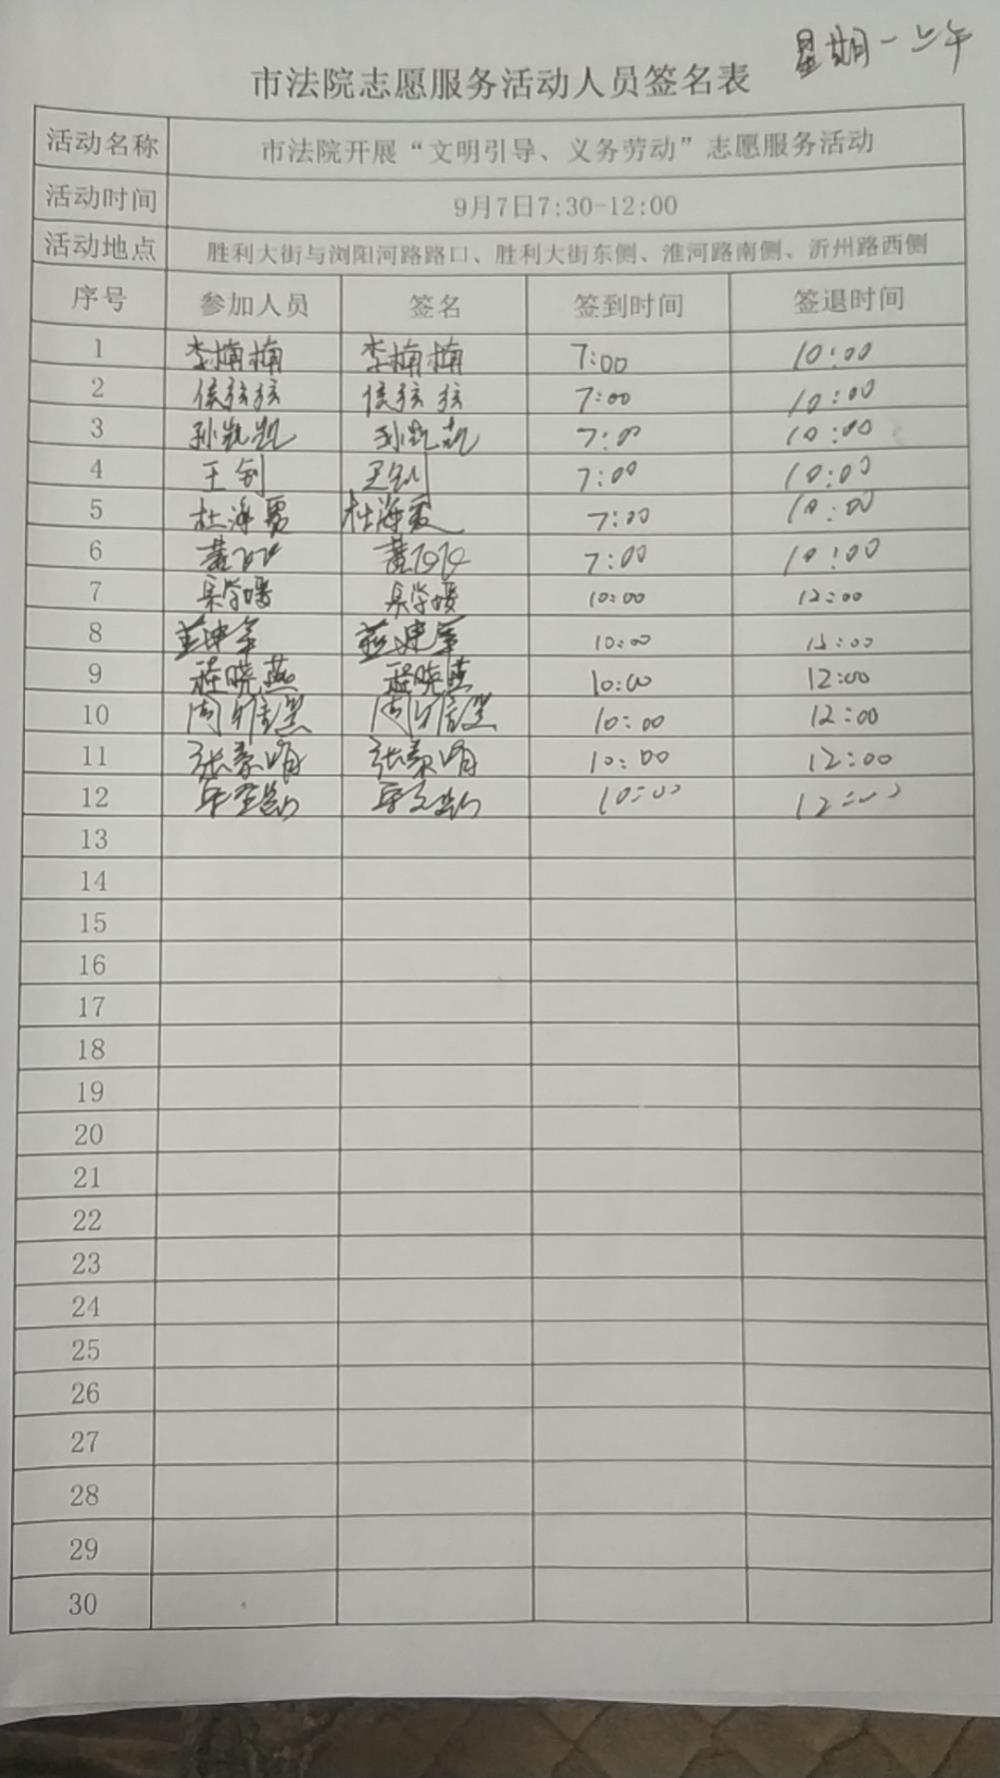 星期一上午
市法院志愿服务活动人员签名表
活动名称 市法院开展“文明引导、义务劳动”志愿服务活动
活动时间 9月7日7:30-12:00
活动地点 胜利大街与浏阳河路路口、胜利大街东侧、淮河路南侧、沂州路西侧
序号 参加人员 签名 签到时间 签退时间
1 李楠楠 李楠楠 7:00 10:00
2 侯弦弦 侯弦弦 7:00 10:00
3 孙凯凯 孙凯凯 7:00 10:00
4 王钊 王钊 7:00 10:00
5 7:00 10:00
6 7:00 10:00
7 吴学媛 吴学媛 10:00 12:00
8 10:00
9 程晓燕 程晓燕 10:00 12:00
10 10:00 12:00
11 张秦娟 张秦娟 10:00 12:00
12 10:00 12:00
13
14
15
16
17
18
19
20
21
22
23
24
25
26
27
28
29
30